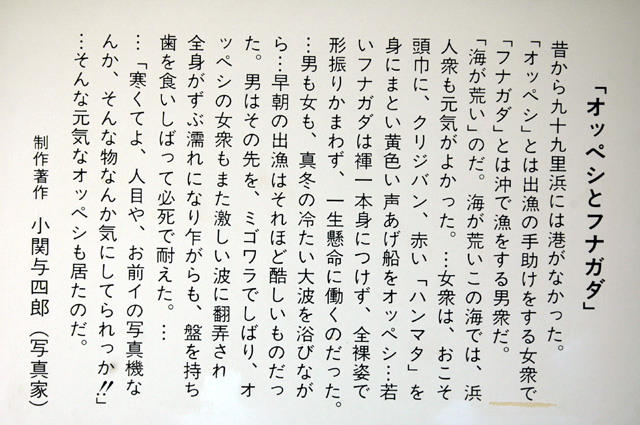 「オッペシとフナガダ」
昔から九十九里浜には港がなかった。
「オッペシ」とは出漁の手助けをする女衆で
「フナガダ」とは沖で漁をする男衆だ。
「海が荒い」のだ。海が荒いこの海では、浜
人衆も元気がよかった。…女衆は、おこそ
頭巾に、クリジバン、赤い「ハンマタ」を
身にまとい黄色い声あげ船をオッペシ…若
いフナガダは褌一本身につけず、全裸姿で
形振りかまわず、一生懸命に働くのだった。
…男も女も、真冬の冷たい大波を浴びなが
ら…早朝の出漁はそれほど酷しいものだっ
た。男はその先を、ミゴワラでしばり、オ
ッペシの女衆もまた激しい波に翻弄され
全身がずぶ濡れになり乍がらも、盤を持ち
歯を食いしばって必死で耐えた。…
…「寒くてよ、人目や、お前イの写真機な
んか、そんな物なんか気にしてられっか!!」
…そんな元気なオッペシも居たのだ。
制作著作 小関与四郎（写真家）